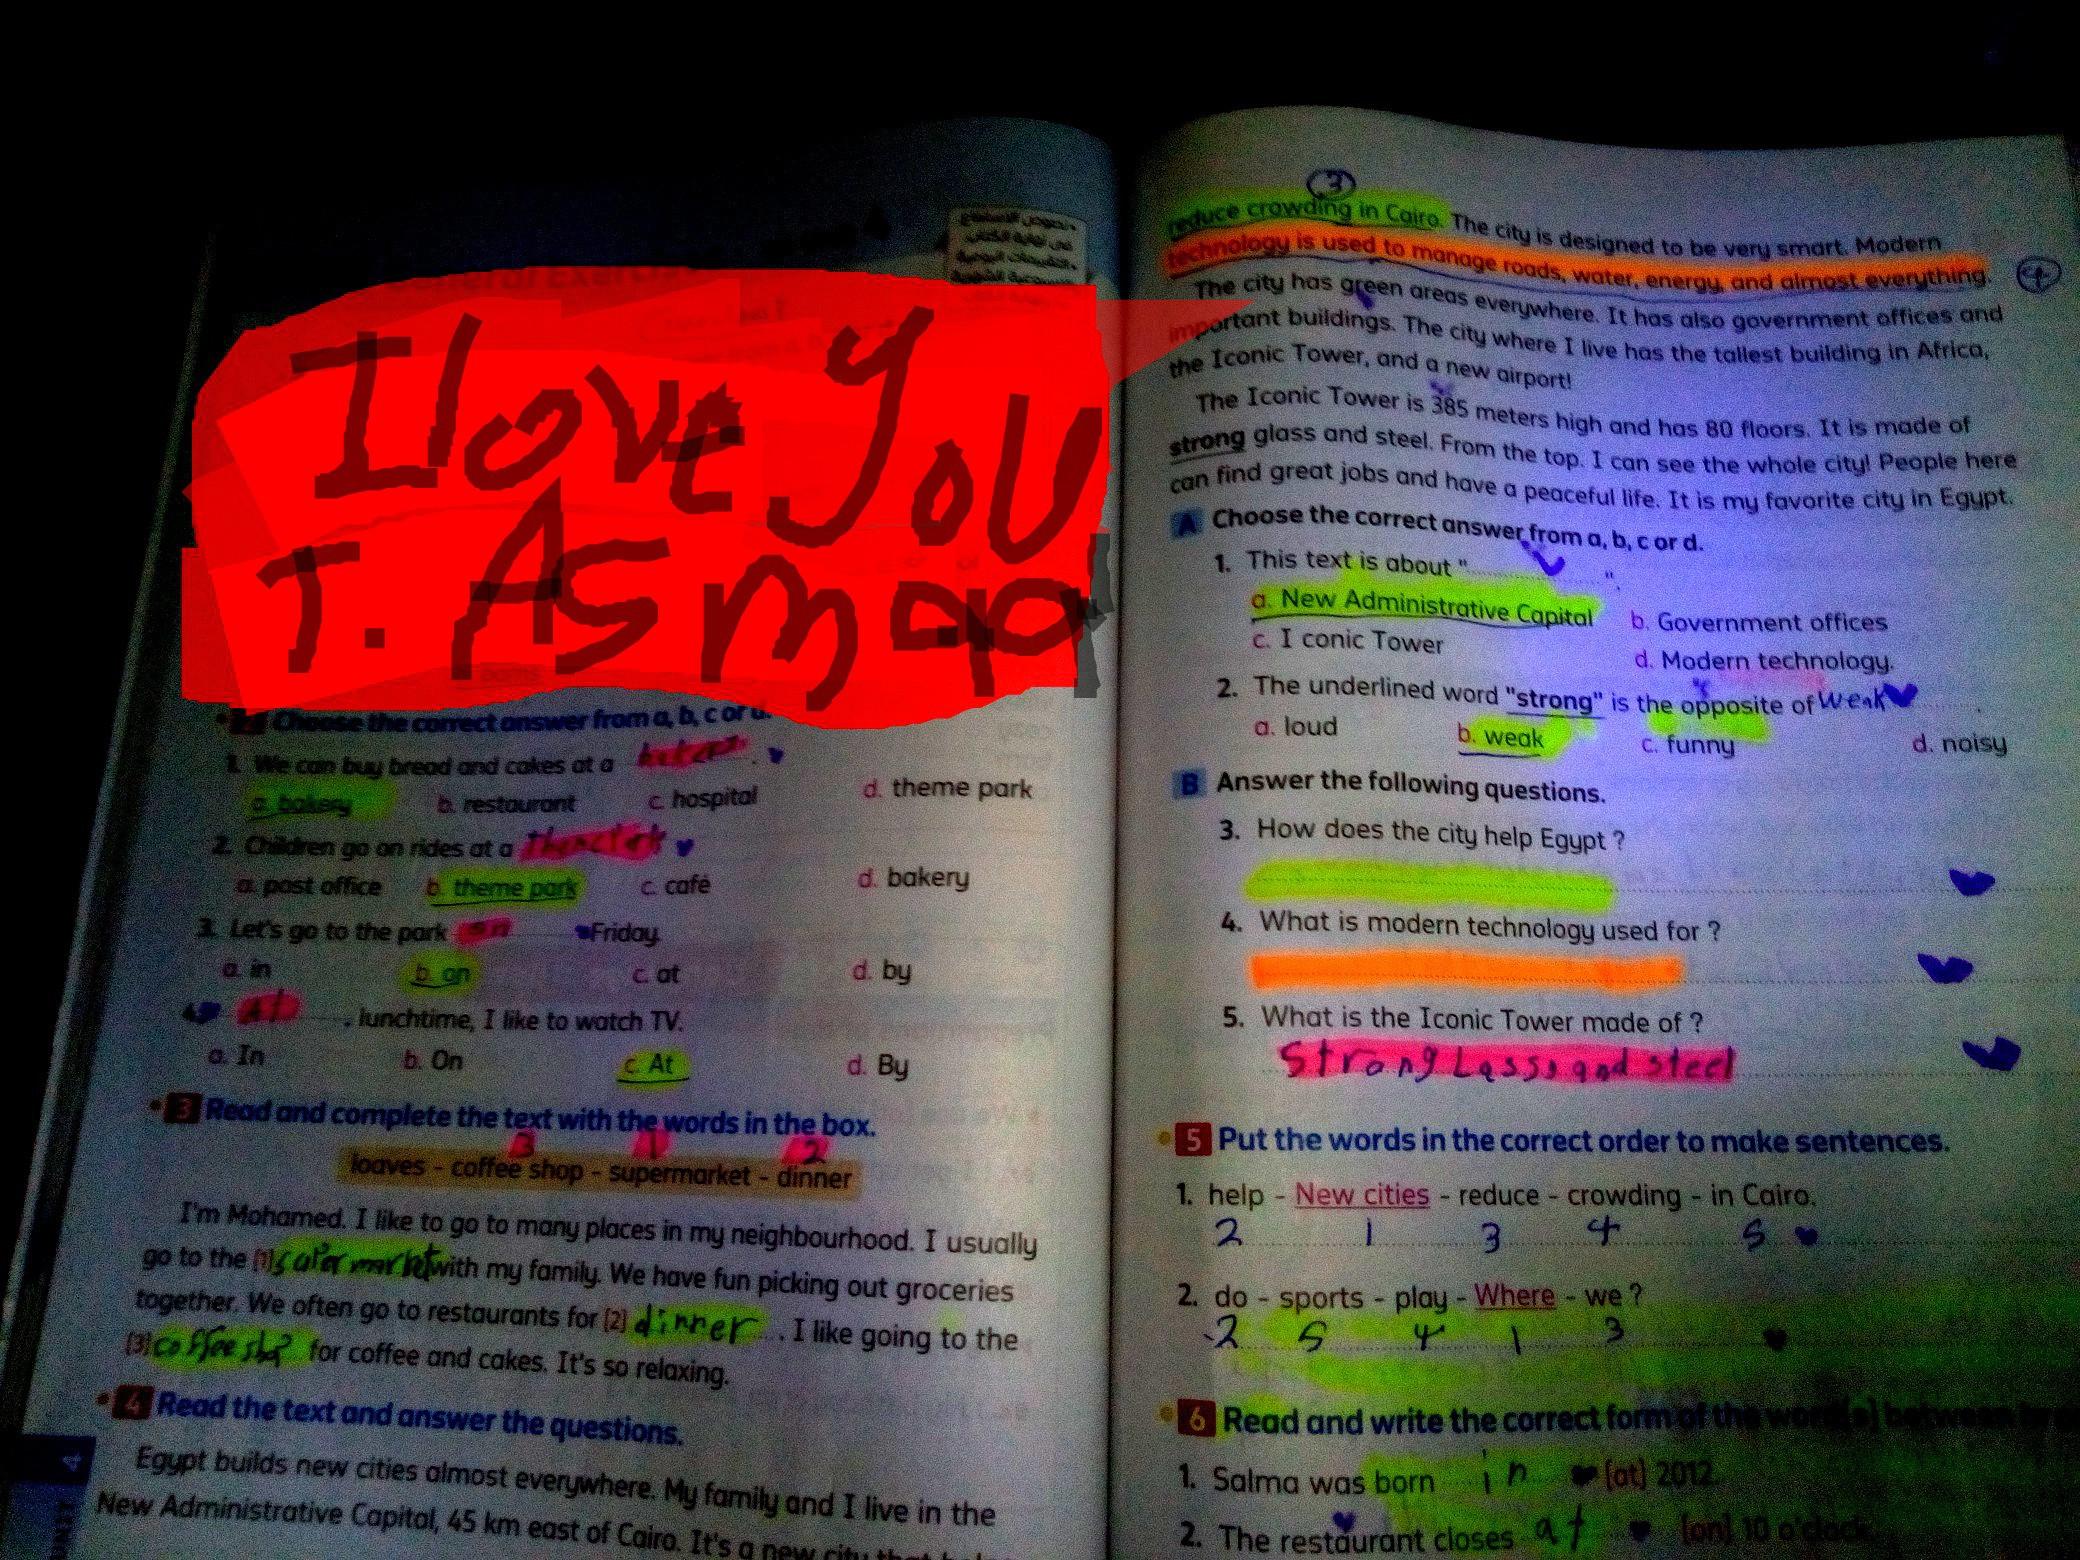 I love you
T. Asmaa
Choose the correct answer from a, b, c or d.
1. We can buy bread and cakes at a
a. bakery b. restaurant c. hospital d. theme park
2. Children go on rides at a
a. post office b. theme park c. café d. bakery
3. Let's go to the park on Friday.
a. in b. on c. at d. by
At lunchtime, I like to watch TV.
a. In b. On c. At d. By
3 Read and complete the text with the words in the box.
3 1 2
loaves - coffee shop - supermarket - dinner
I'm Mohamed. I like to go to many places in my neighbourhood. I usually
go to the (1) with my family. We have fun picking out groceries
together. We often go to restaurants for (2) dinner. I like going to the
(3) for coffee and cakes. It's so relaxing.
4 Read the text and answer the questions.
Egypt builds new cities almost everywhere. My family and I live in the
New Administrative Capital, 45 km east of Cairo. It's a new city that
4
UNIT
3
reduce crowding in Cairo. The city is designed to be very smart. Modern
technology is used to manage roads, water, energy, and almost everything. 4
The city has green areas everywhere. It has also government offices and
important buildings. The city where I live has the tallest building in Africa,
the Iconic Tower, and a new airport!
The Iconic Tower is 385 meters high and has 80 floors. It is made of
strong glass and steel. From the top. I can see the whole city! People here
can find great jobs and have a peaceful life. It is my favorite city in Egypt.
A Choose the correct answer from a, b, c or d.
1. This text is about " ".
a. New Administrative Capital b. Government offices
c. I conic Tower d. Modern technology.
2. The underlined word "strong" is the opposite of weak
a. loud b. weak c. funny d. noisy
B Answer the following questions.
3. How does the city help Egypt ?
4. What is modern technology used for ?
5. What is the Iconic Tower made of ?
Strong Lass, and steel
5 Put the words in the correct order to make sentences.
1. help - New cities - reduce - crowding - in Cairo.
2 1 3 4 5
2. do - sports - play - Where - we ?
2 5 4 1 3
6 Read and write the correct form of the word(s) between
1. Salma was born in (at) 2012.
2. The restaurant closes at (on) 10 o'clock.